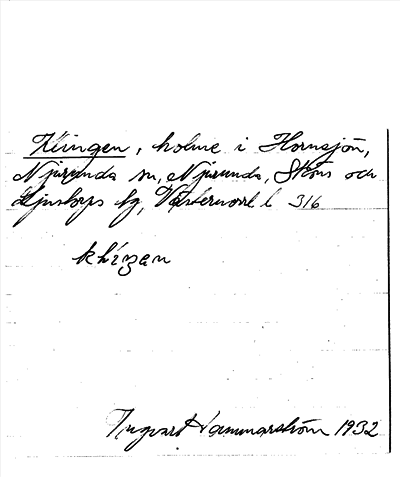 Klingen, holme i Hornsjön,
Njurunda sn, Njurunda, Sköns och
Ljustorps tg, Västernorrl l 316
klíŋən
Ingvar Hammarström 1932